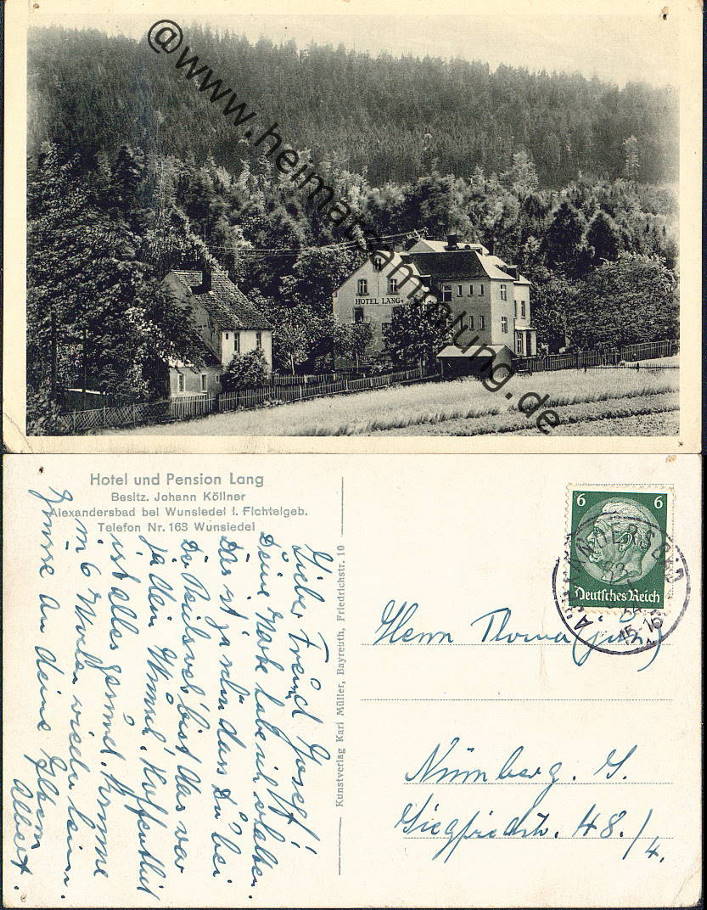 @www.heimatsammlung.de
HOTEL LANG
Hotel und Pension Lang
Besitz. Johann Köllner
Alexandersbad bei Wunsiedel i. Fichtelgeb.
Telefon Nr. 163 Wunsiedel
Lieber Freund Josef!
Deine Karte habe ich erhalten.
Das ist ja schön dass Du bei
Die bist das war
ja dein Wunsch. Hoffentlich
ist alles gesund. Komme
in 6 Wochen wieder heim.
Grüsse an deine Eltern
Albert.
Kunstverlag Karl Müller, Bayreuth, Friedrichstr. 10
6 6
Deutsches Reich
ALEXANDERSBAD
Herrn Thoma
Nürnberg. S.
Siegfriedstr. 48./4.